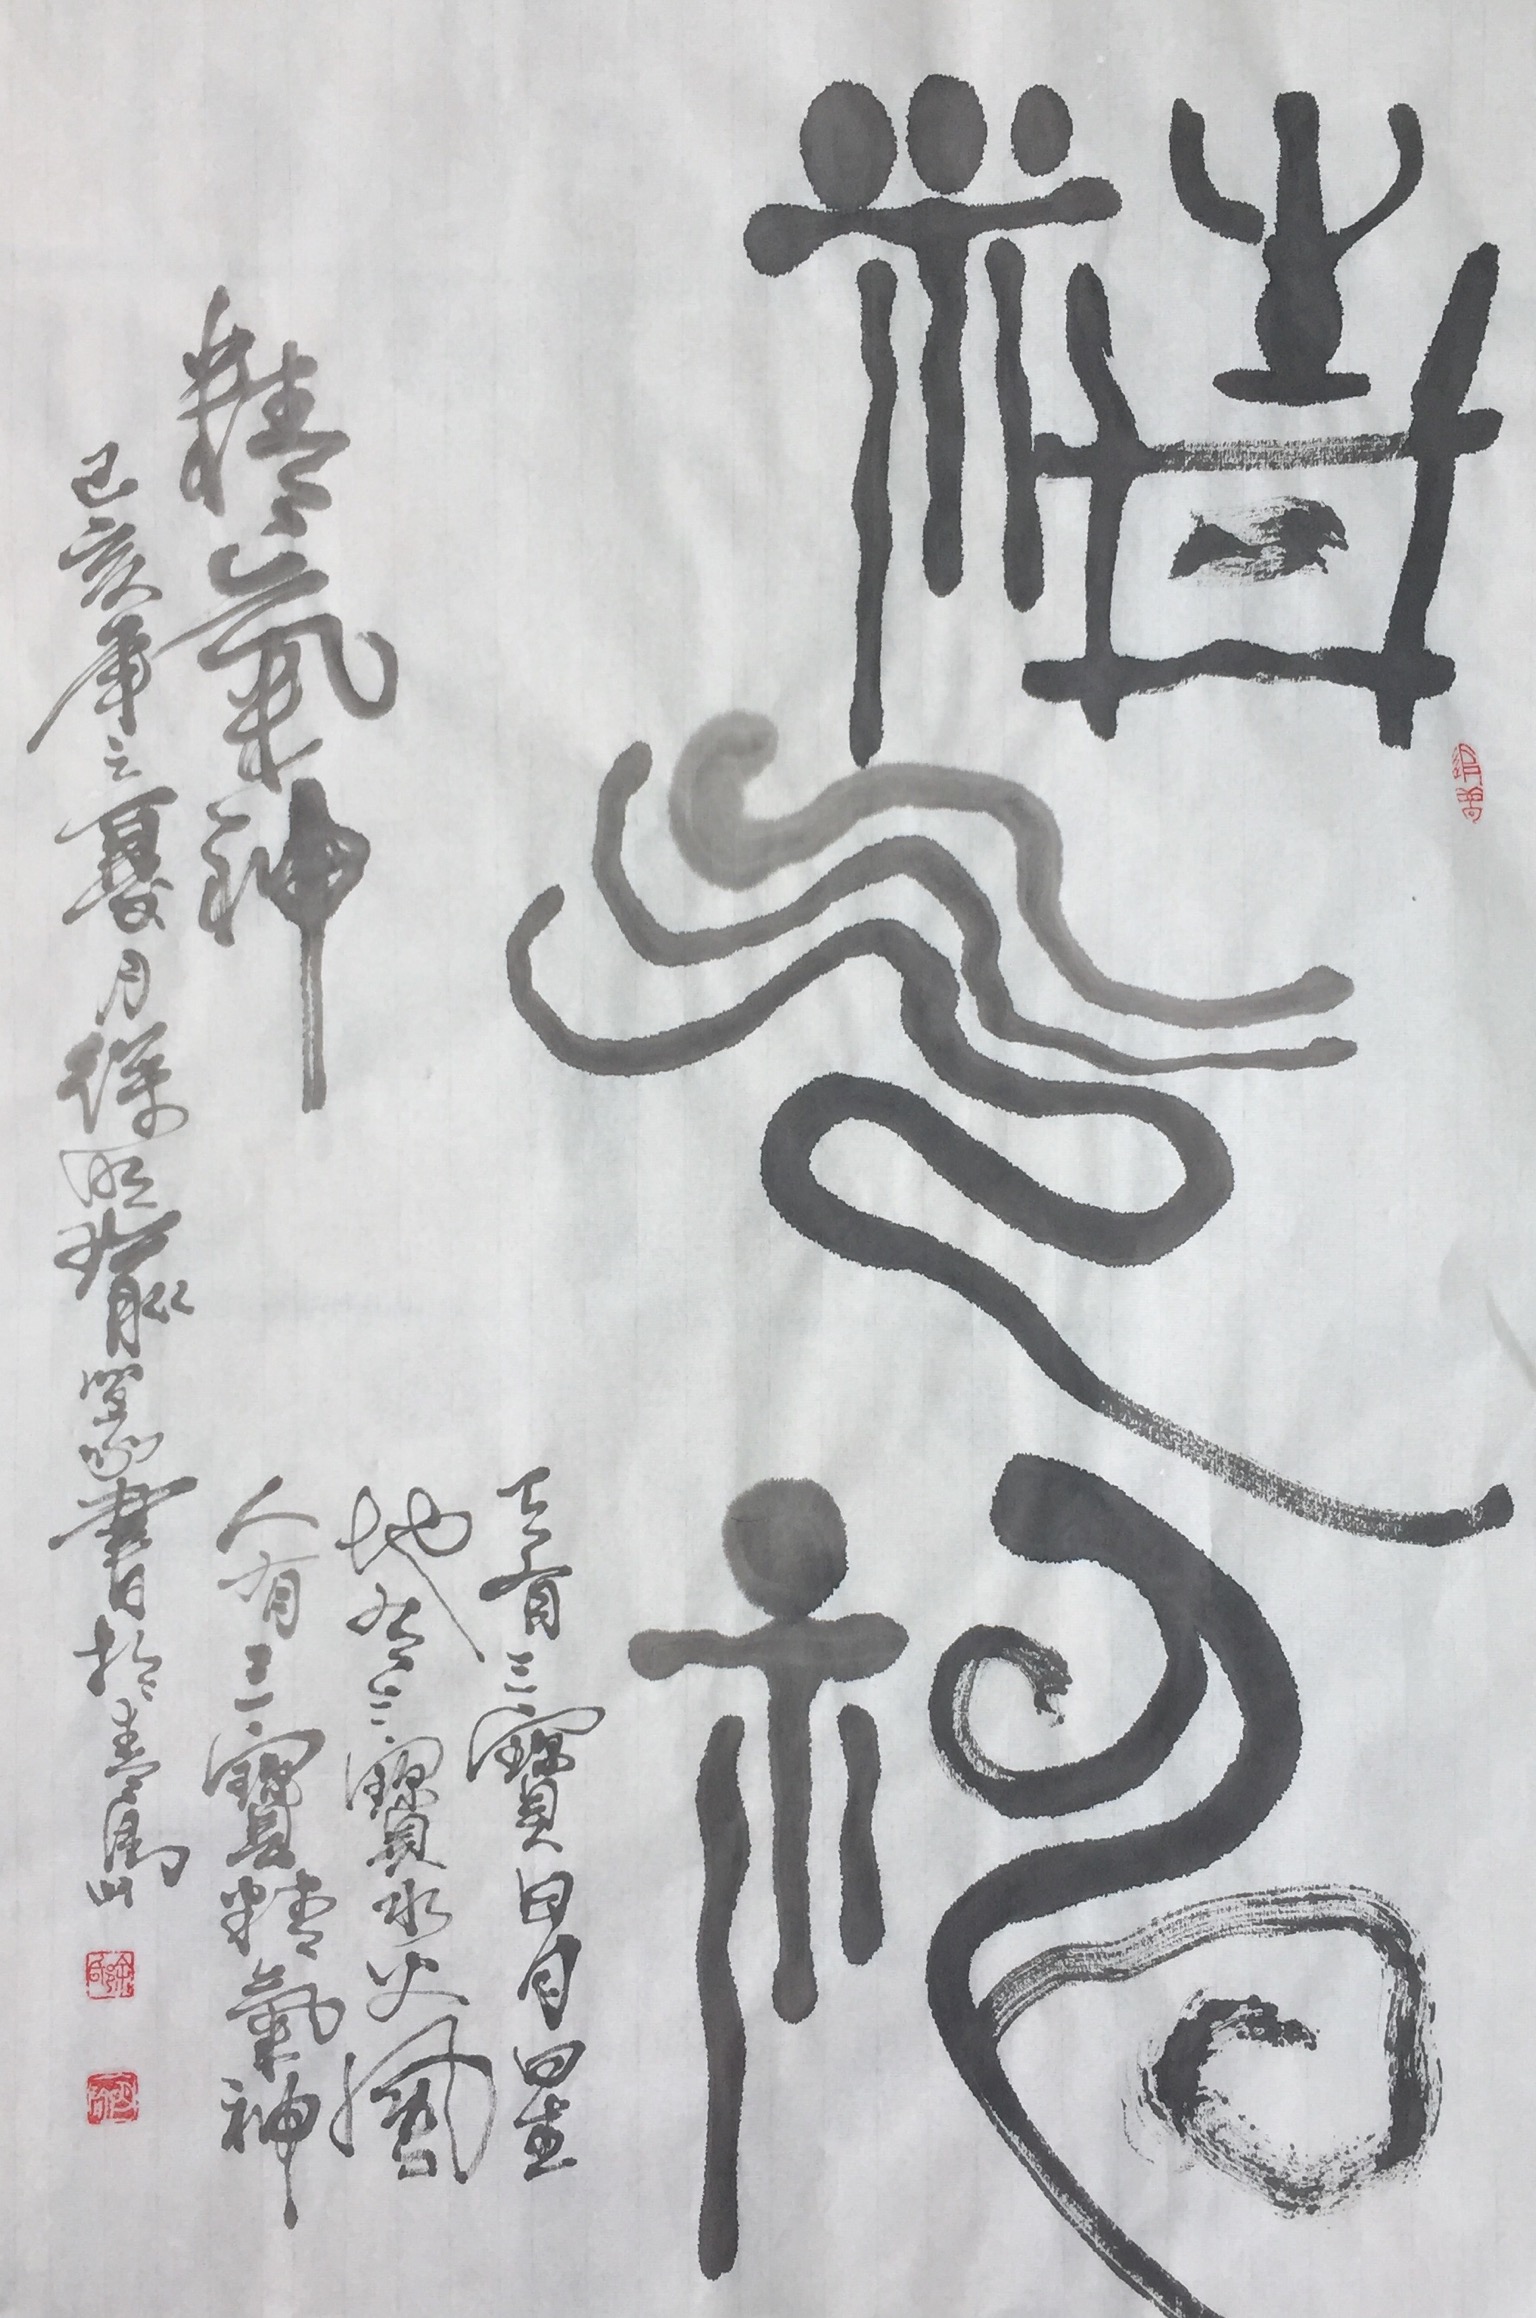 精氣神
天有三寶日月星
地有三寶水火風
人有三寶精氣神
精氣神
己亥年之夏月徐明 書於